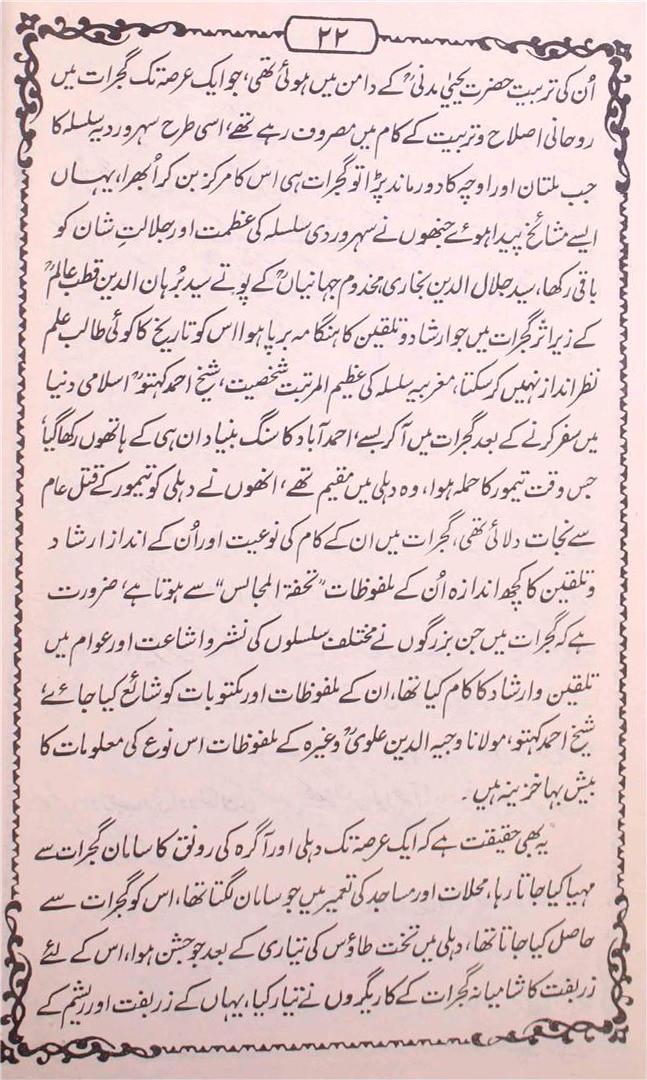 ۲۲
اُن کی تربیت حضرت یحییٰ مدنیؒ کے دامن میں ہوئی تھی، جو ایک عرصہ تک گجرات میں
روحانی اصلاح و تربیت کے کام میں مصروف رہے تھے، اسی طرح سہروردیہ سلسلہ کا
جب ملتان اور اوچہ کا دور ماند پڑا تو گجرات ہی اس کا مرکز بن کر اُبھرا، یہاں
ایسے مشائخ پیدا ہوئے جنھوں نے سہروردی سلسلہ کی عظمت اور جلالتِ شان کو
باقی رکھا، سید جلال الدین بخاری مخدوم جہانیاںؒ کے پوتے سید بُرہان الدین قطب عالمؒ
کے زیر اثر گجرات میں جو ارشاد و تلقین کا ہنگامہ برپا ہوا اس کو تاریخ کا کوئی طالب علم
نظر انداز نہیں کر سکتا، مغربیہ سلسلہ کی عظیم المرتبت شخصیت، شیخ احمد کہتوؒ اسلامی دنیا
میں سفر کرنے کے بعد گجرات میں آ کر بسے، احمد آباد کا سنگ بنیاد ان ہی کے ہاتھوں رکھا گیا،
جس وقت تیمور کا حملہ ہوا، وہ دہلی میں مقیم تھے، انھوں نے دہلی کو تیمور کے قتل عام
سے نجات دلائی تھی، گجرات میں ان کے کام کی نوعیت اور اُن کے انداز ارشاد
و تلقین کا کچھ اندازہ اُن کے ملفوظات "تحفۃ المجالس" سے ہوتا ہے، ضرورت
ہے کہ گجرات میں جن بزرگوں نے مختلف سلسلوں کی نشر و اشاعت اور عوام میں
تلقین و ارشاد کا کام کیا تھا، ان کے ملفوظات اور مکتوبات کو شائع کیا جائے،
شیخ احمد کہتو، مولانا وجیہ الدین علویؒ وغیرہ کے ملفوظات اس نوع کی معلومات کا
بیش بہا خزینہ ہیں۔
یہ بھی حقیقت ہے کہ ایک عرصہ تک دہلی اور آگرہ کی رونق کا سامان گجرات سے
مہیا کیا جاتا رہا، محلات اور مساجد کی تعمیر میں جو سامان لگتا تھا، اس کو گجرات سے
حاصل کیا جاتا تھا، دہلی میں تخت طاؤس کی تیاری کے بعد جو جشن ہوا، اس کے لئے
زربفت کا شامیانہ گجرات کے کاریگروں نے تیار کیا، یہاں کے زربفت اور ریشم کے